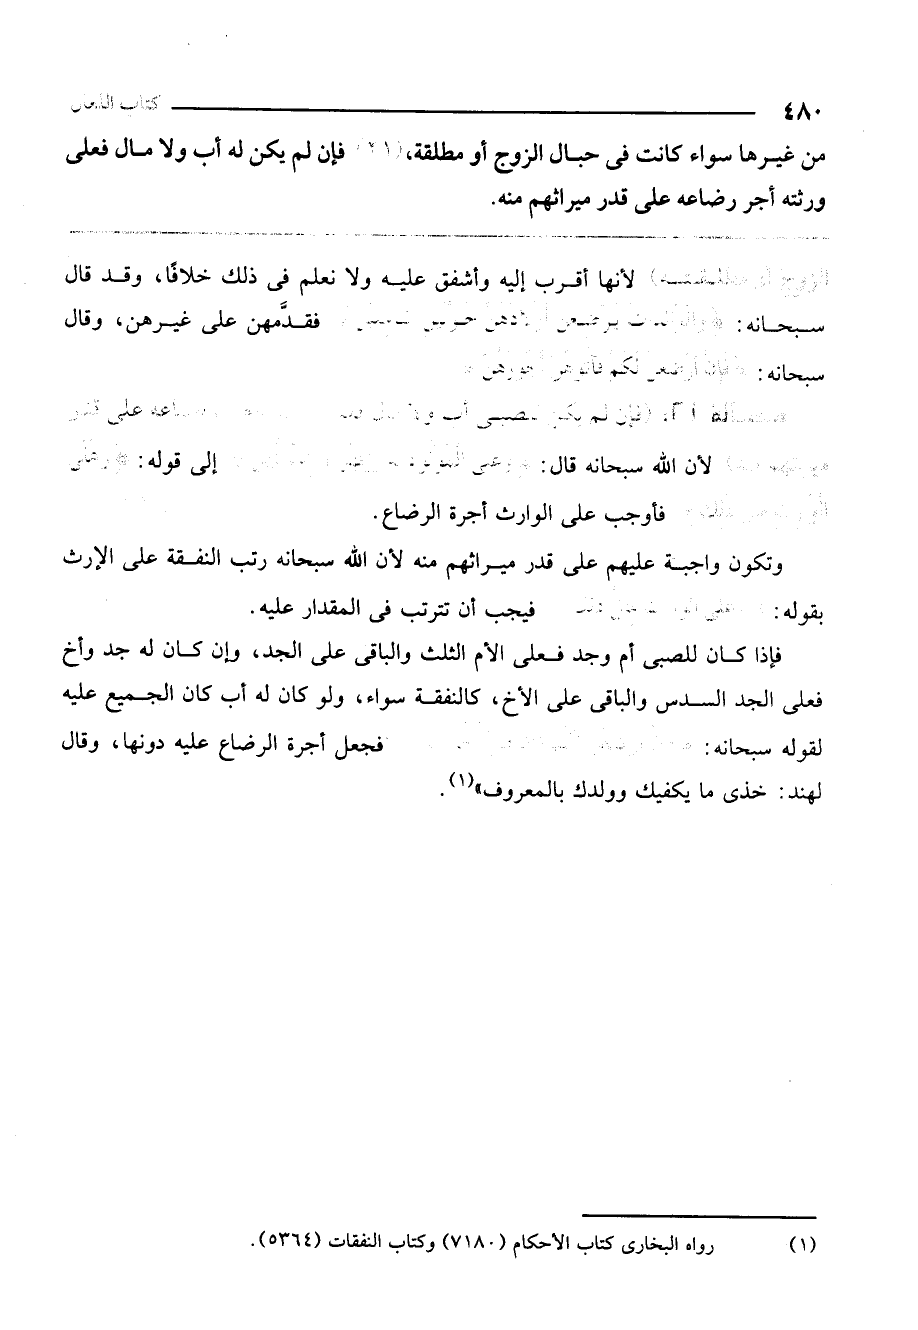 ٤٨٠ كتاب اللعان
من غيرها سواء كانت فى حبال الزوج أو مطلقة، (٢١) فإن لم يكن له أب ولا مال فعلى
ورثته أجر رضاعه على قدر ميراثهم منه.
الزوج أو مطلقته) لأنها أقرب إليه وأشفق عليه ولا نعلم فى ذلك خلافًا، وقد قال
سبحانه: ﴿والوالدات يرضعن أولادهن حولين كاملين﴾ فقدَّمهن على غيرهن، وقال
سبحانه: ﴿فإن أرضعن لكم فآتوهن أجورهن﴾
مسألة ٢١: (فإن لم يكن للصبى أب ولا مال رضاعه على قدر
ميراثهم منه) لأن الله سبحانه قال: ﴿وعلى المولود له إلى قوله: ﴿وعلى
الوارث مثل ذلك﴾ فأوجب على الوارث أجرة الرضاع.
وتكون واجبة عليهم على قدر ميراثهم منه لأن الله سبحانه رتب النفقة على الإرث
بقوله: ﴿وعلى الوارث مثل ذلك﴾ فيجب أن تترتب فى المقدار عليه.
فإذا كان للصبى أم وجد فعلى الأم الثلث والباقى على الجد، وإن كان له جد وأخ
فعلى الجد السدس والباقى على الأخ، كالنفقة سواء، ولو كان له أب كان الجميع عليه
لقوله سبحانه: فجعل أجرة الرضاع عليه دونها، وقال
لهند: خذى ما يكفيك وولدك بالمعروف»(١).
(١) رواه البخارى كتاب الأحكام (٧١٨٠) وكتاب النفقات (٥٣٦٤).